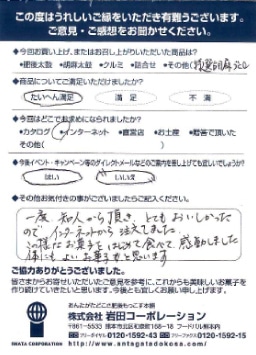 この度はうれしいご縁をいただき有難うございます。
ご意見・ご感想をお聞かせください。
◆今回お買い上げ、またはお召し上がりいただいた商品は?
・肥後太鼓 ・胡麻太鼓 ・クルミ ・詰合せ ・その他(
◆商品についてご満足いただけましたか?
たいへん満足 満足 不満
◆今回はどこでお求めになられましたか?
・カタログ ・インターネット ・直営店 ・お土産 ・贈答で頂いた
その他( )
◆今後イベント・キャンペーン等のダイレクトメールなどのご案内を差し上げても宜しいでしょうか?
はい いいえ
◆その他お気付きの事がございましたらご記入ください。
一度 知人から頂き、とてもおいしかった
ので、インターネットから注文しました。
この様なお菓子をはじめて食べて、感動しました
体にもよいお菓子だと思います
ご協力ありがとうございました。
皆さまからお寄せいただいたご意見を参考に、これからも美味しいお菓子
を作り続けていきたいと思います。今後とも宜しくお願い申し上げます。
あんたがたどこさ肥後もっこす本舗
株式会社 岩田コーポレーション
IWATA CORPORATION
〒861-5533 熊本市五反和泉町168-18 フードパル熊本内
0120-1592-59 0120-1592-15
http://www.antagatadokosa.com/